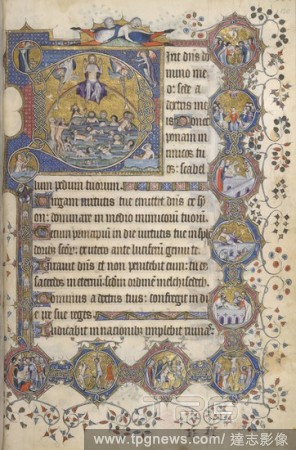 Dixit dns do
mino me
o: sede a
dextris me
is Donec
ponam in
imicos tu
os: scabel
lum pedum tuorum.
Virgam virtutis tue emittet dns ex sy
on: dominare in medio inimicorum tuorum.
in die virtutis tue in splen
ex utero ante
dns et non penitebit eum: tu es
sacerdos in eternum ordinem melchisedech.
Dominus a dextris tuis: confregit in di
e ire sue reges.
Iudicabit in nationibus implebit ruinas:
www.tpgnews.com/ 達志影像